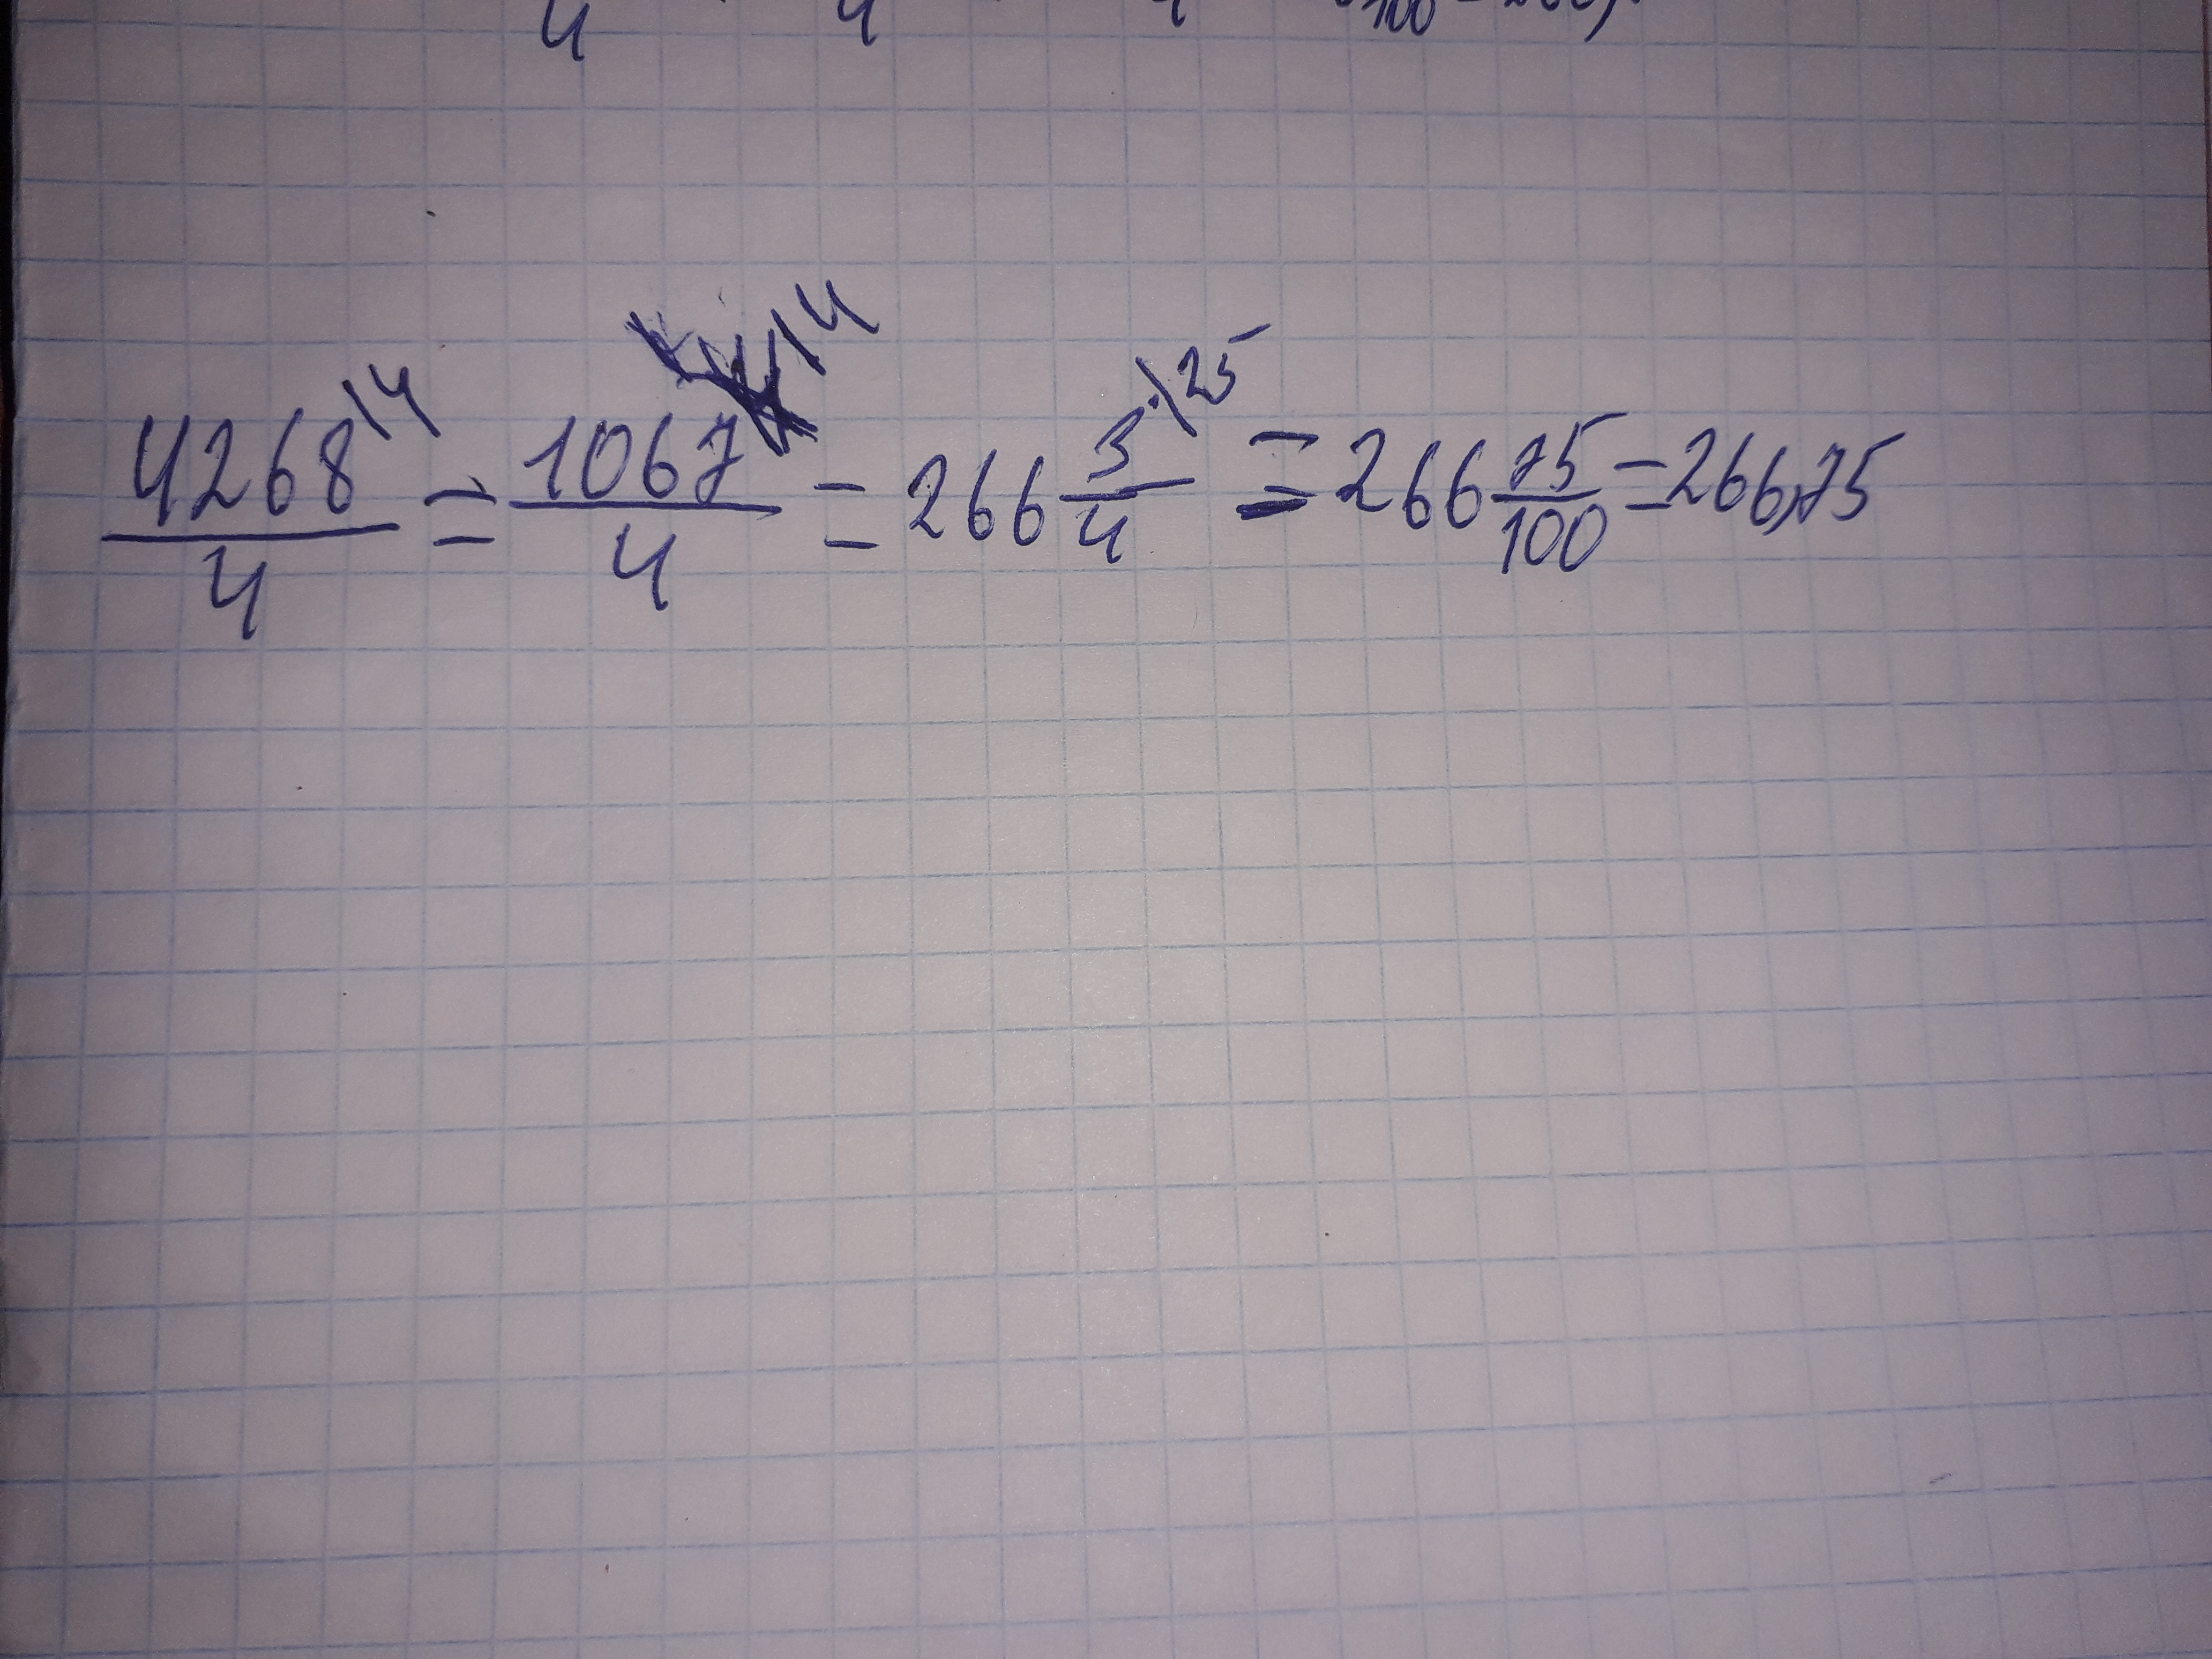 4 4 4 100
4268\4/4 = 1067\4/4 = 266 3·\25/4 = 266 75/100 = 266,75